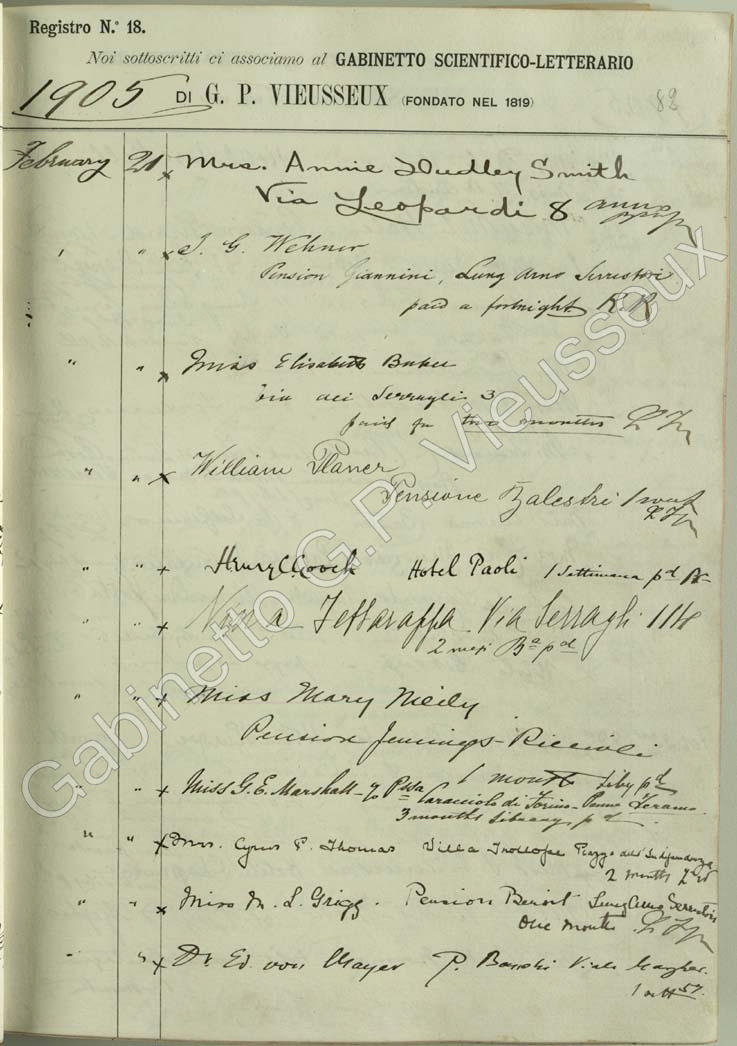 Registro N.° 18.
Noi sottoscritti ci associamo al GABINETTO SCIENTIFICO-LETTERARIO
1905 DI G. P. VIEUSSEUX (FONDATO NEL 1819) 82
February 21 x Mrs. Annie Dudley Smith
Via Leopardi 8 anno
" " x J. G. Wehner
Pension Giannini, Lung Arno Serristori
paid a fortnight R. R
" " x Miss Elisabeth Baker
Via dei Serragli 3
paid for two months
" " x William Planer
Pensione Balestri 1 week
" " + Henry C. Gooch Hotel Paoli 1 Settimana pd
" " + Via Serragli 114
2 mesi pd
" " + Miss Mary Neely
Pension Jennings-Riccioli
1 month Liby pd
" + Miss G. E. Marshall - c/o Pssa Caracciolo di Torino - Penne Teramo
3 months library pd
" " x Mrs. Cyrus P. Thomas Villa Trollope Piazza dell' Indipendenza
2 months
" " x Miss M. L. Grigg. Pension Benoit Lung Arno Serristori
One month
" " x Dr Ed. von Mayer P. Banchi Viale
Gabinetto G.P. Vieusseux